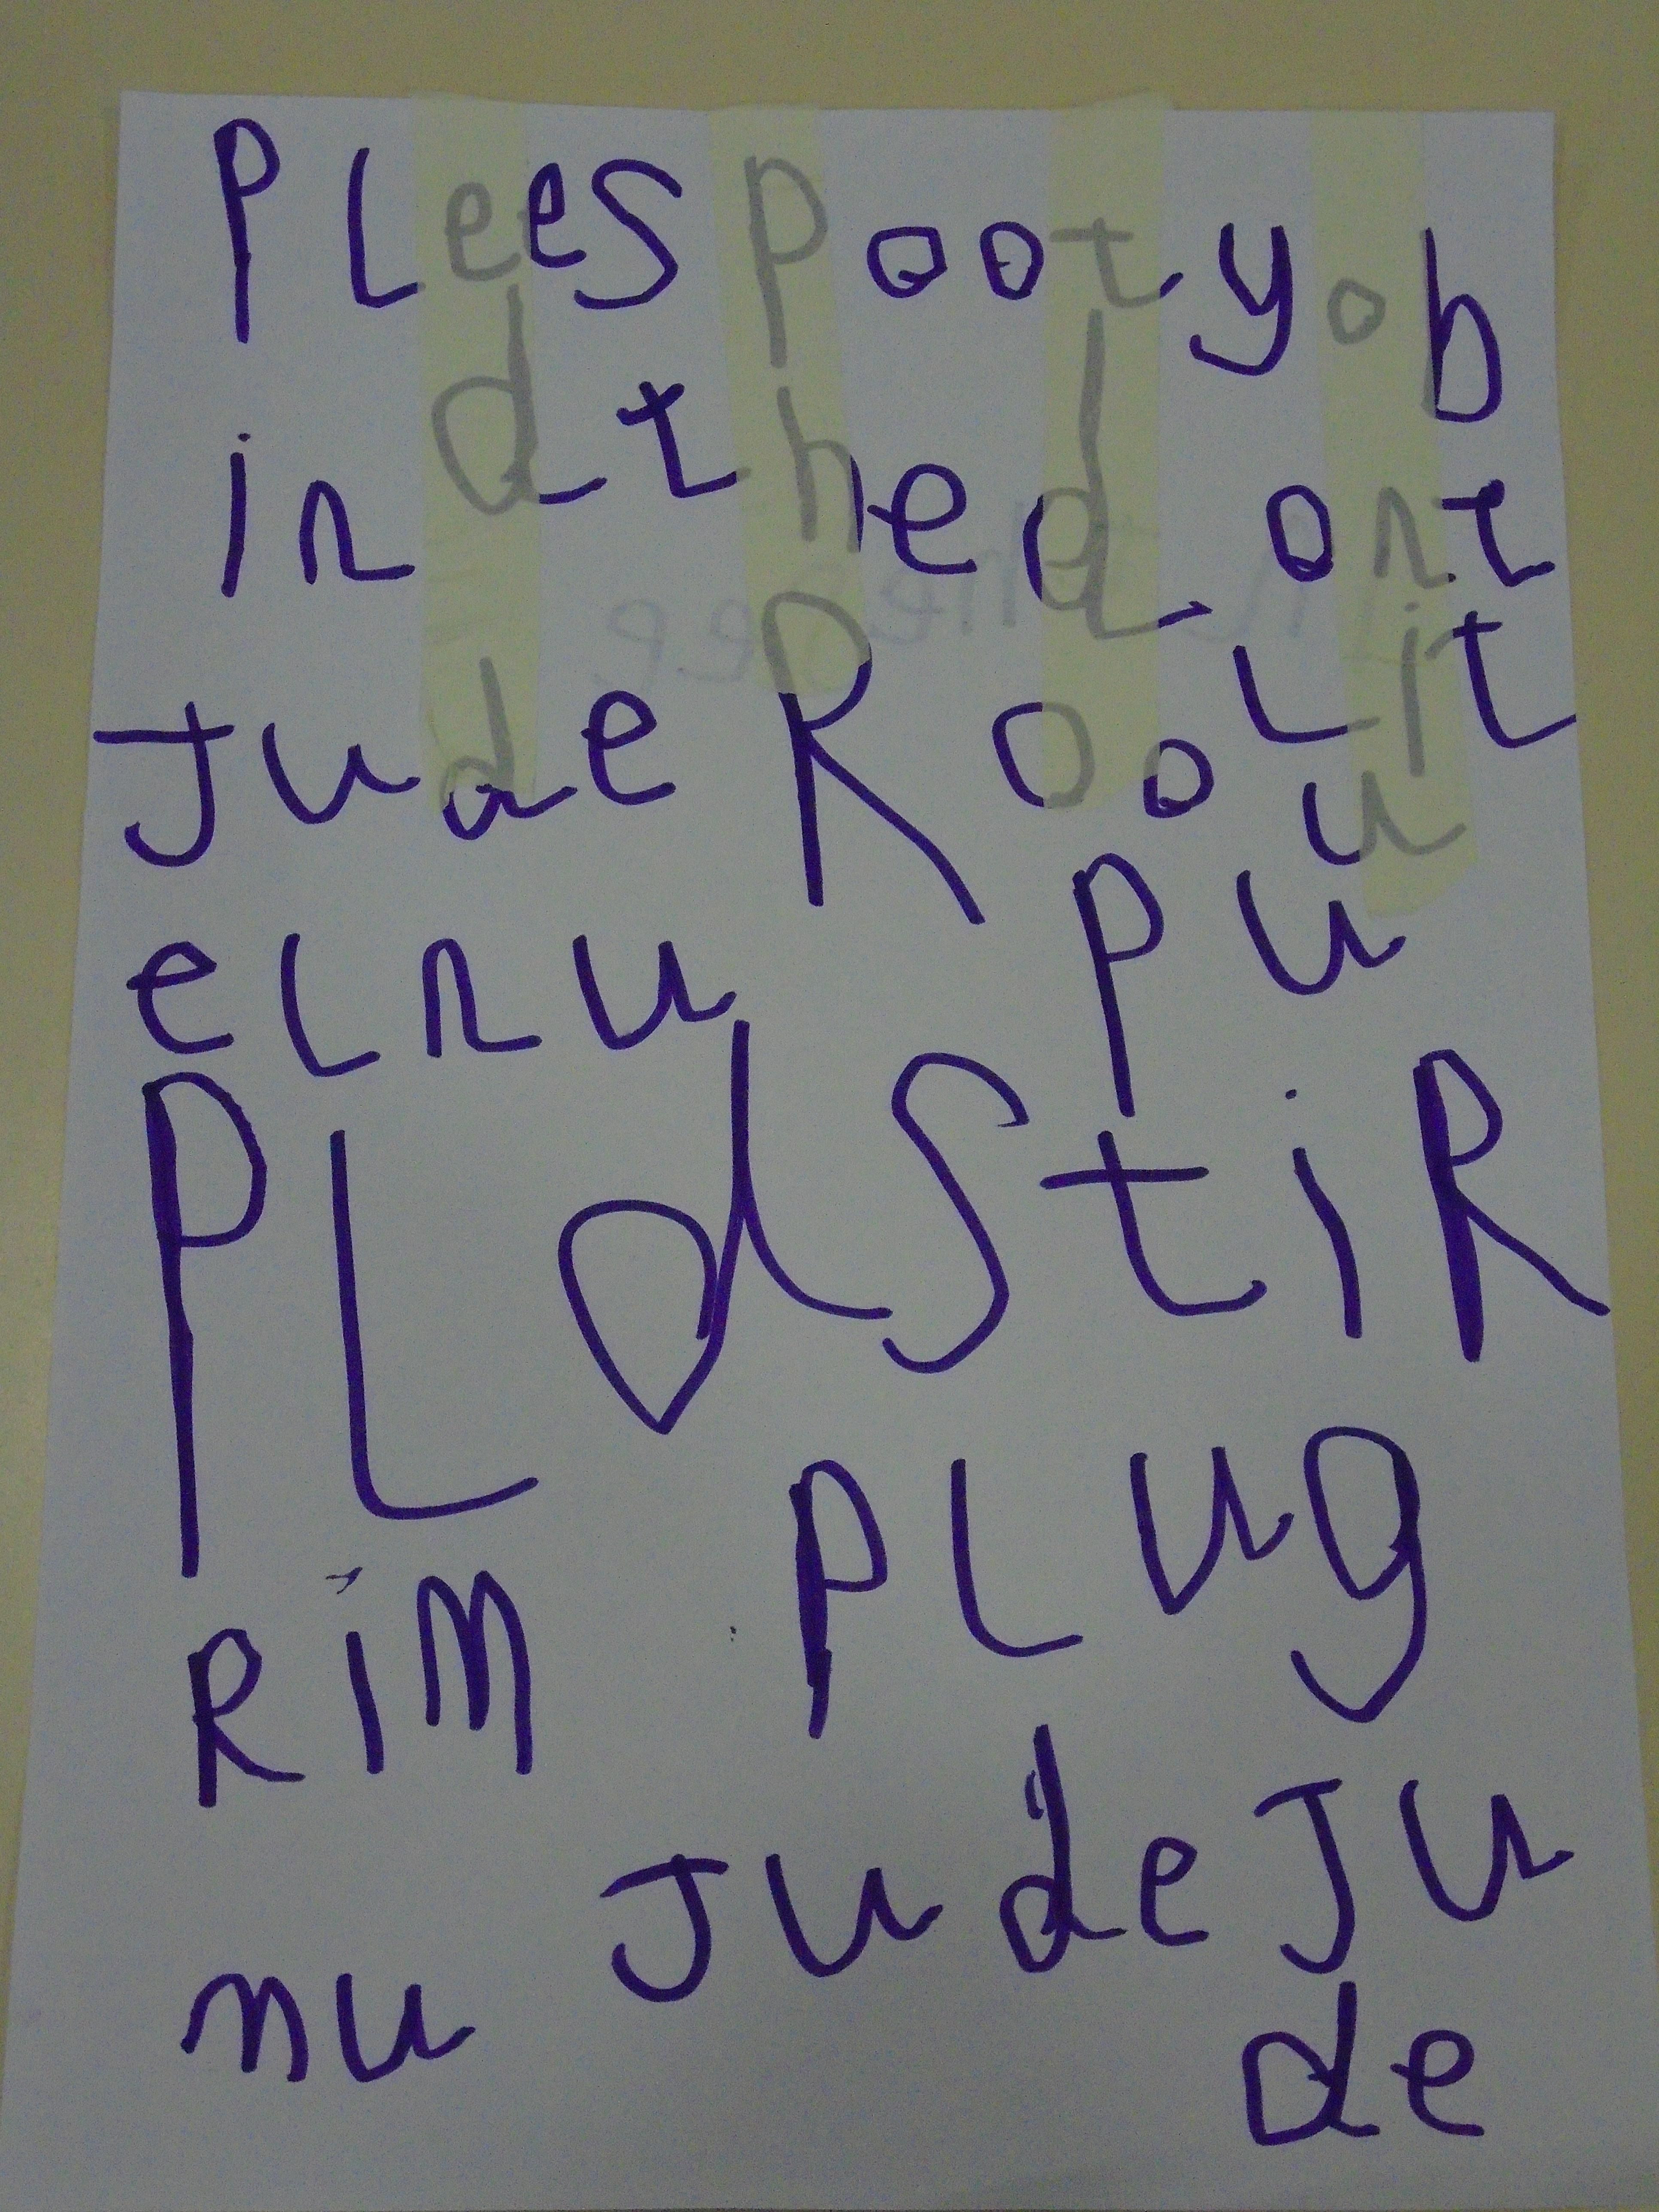 PLees pootyob
ind the d ont
Jude Root it
elnu pu u
PLdstiR
Rim plug
nu Jude Ju
de